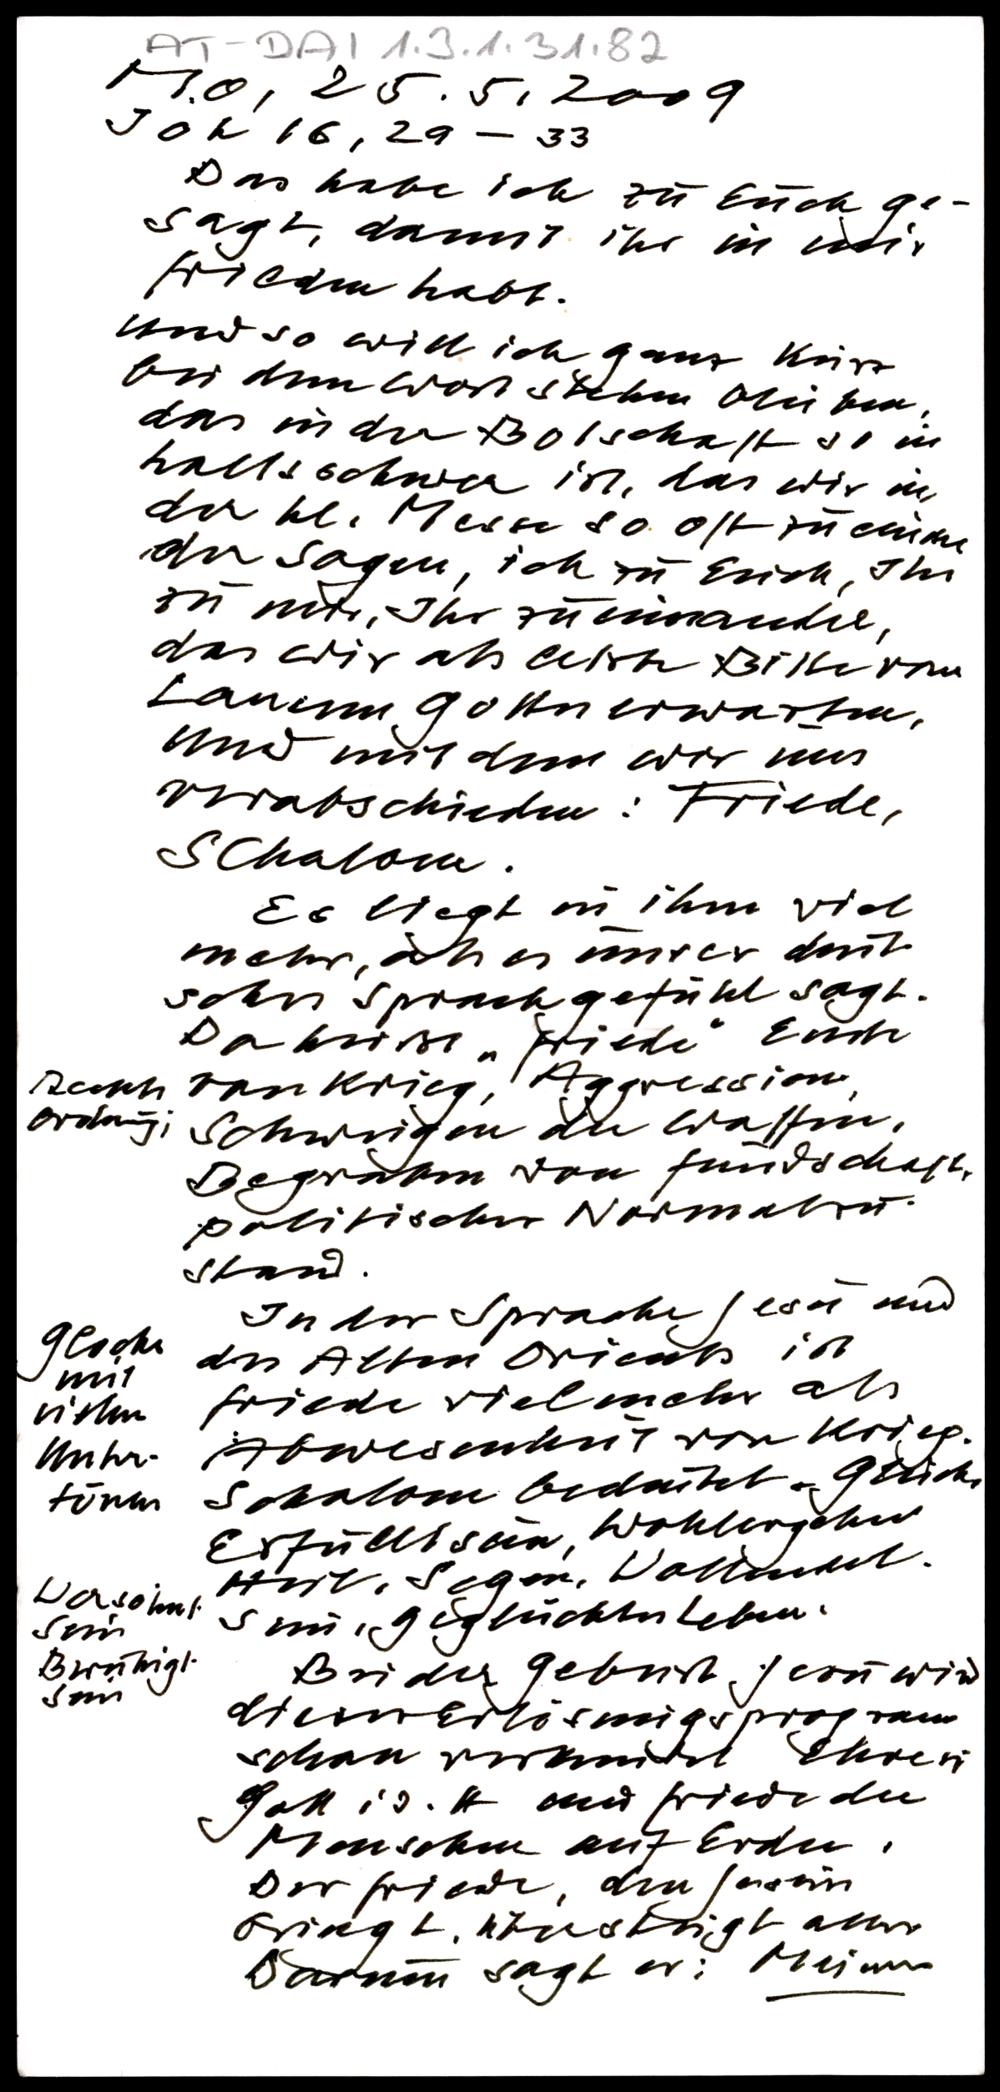 AT-DAI 1.3.1.31.82
Mo, 25.5.2009
Joh 16,29-33
Das habe ich zu Euch ge-
sagt, damit ihr in mir
Frieden habt.
Und so will ich ganz kurz
bei dem Wort stehen bleiben,
das in der Botschaft so in
haltsschwer ist, das wir in
der hl. Messe so oft zu einan
der sagen, ich zu Euch, Ihr
zu mir, Ihr zueinander,
das wir als letzte Bitte vom
Lamm Gottes erwarten,
und mit dem wir uns
verabschieden: Friede,
SChalom.
Es liegt in ihm viel
mehr, als es unser deut
sches Sprachgefühl sagt.
Da heisst "Friede" Ende
von Krieg, Aggression,
Rechts
ordnung;
Schweigen der Waffen,
Begraben von Feindschaft,
politischer Normalzu
stand.
In der Sprache Jesu und
des Alten Orients ist
Friede viel mehr als
Abwesenheit von Krieg.
Glocke
mit
vielen
Unter-
tönen
Schalom bedeutet Glück
Erfülltsein, Wohlergehen
Heil, Segen, Vollendet
sein, geglücktes Leben.
Versöhnt
sein
Beruhigt
sein
Bei der Geburt Jesu wird
dieses Erlösungsprogram
schon verkündet Ehre sei
Gott i.d.H und Friede den
Menschen auf Erden.
Der Friede, den Jesus
bringt, übersteigt alles
Darum sagt er: Meinen